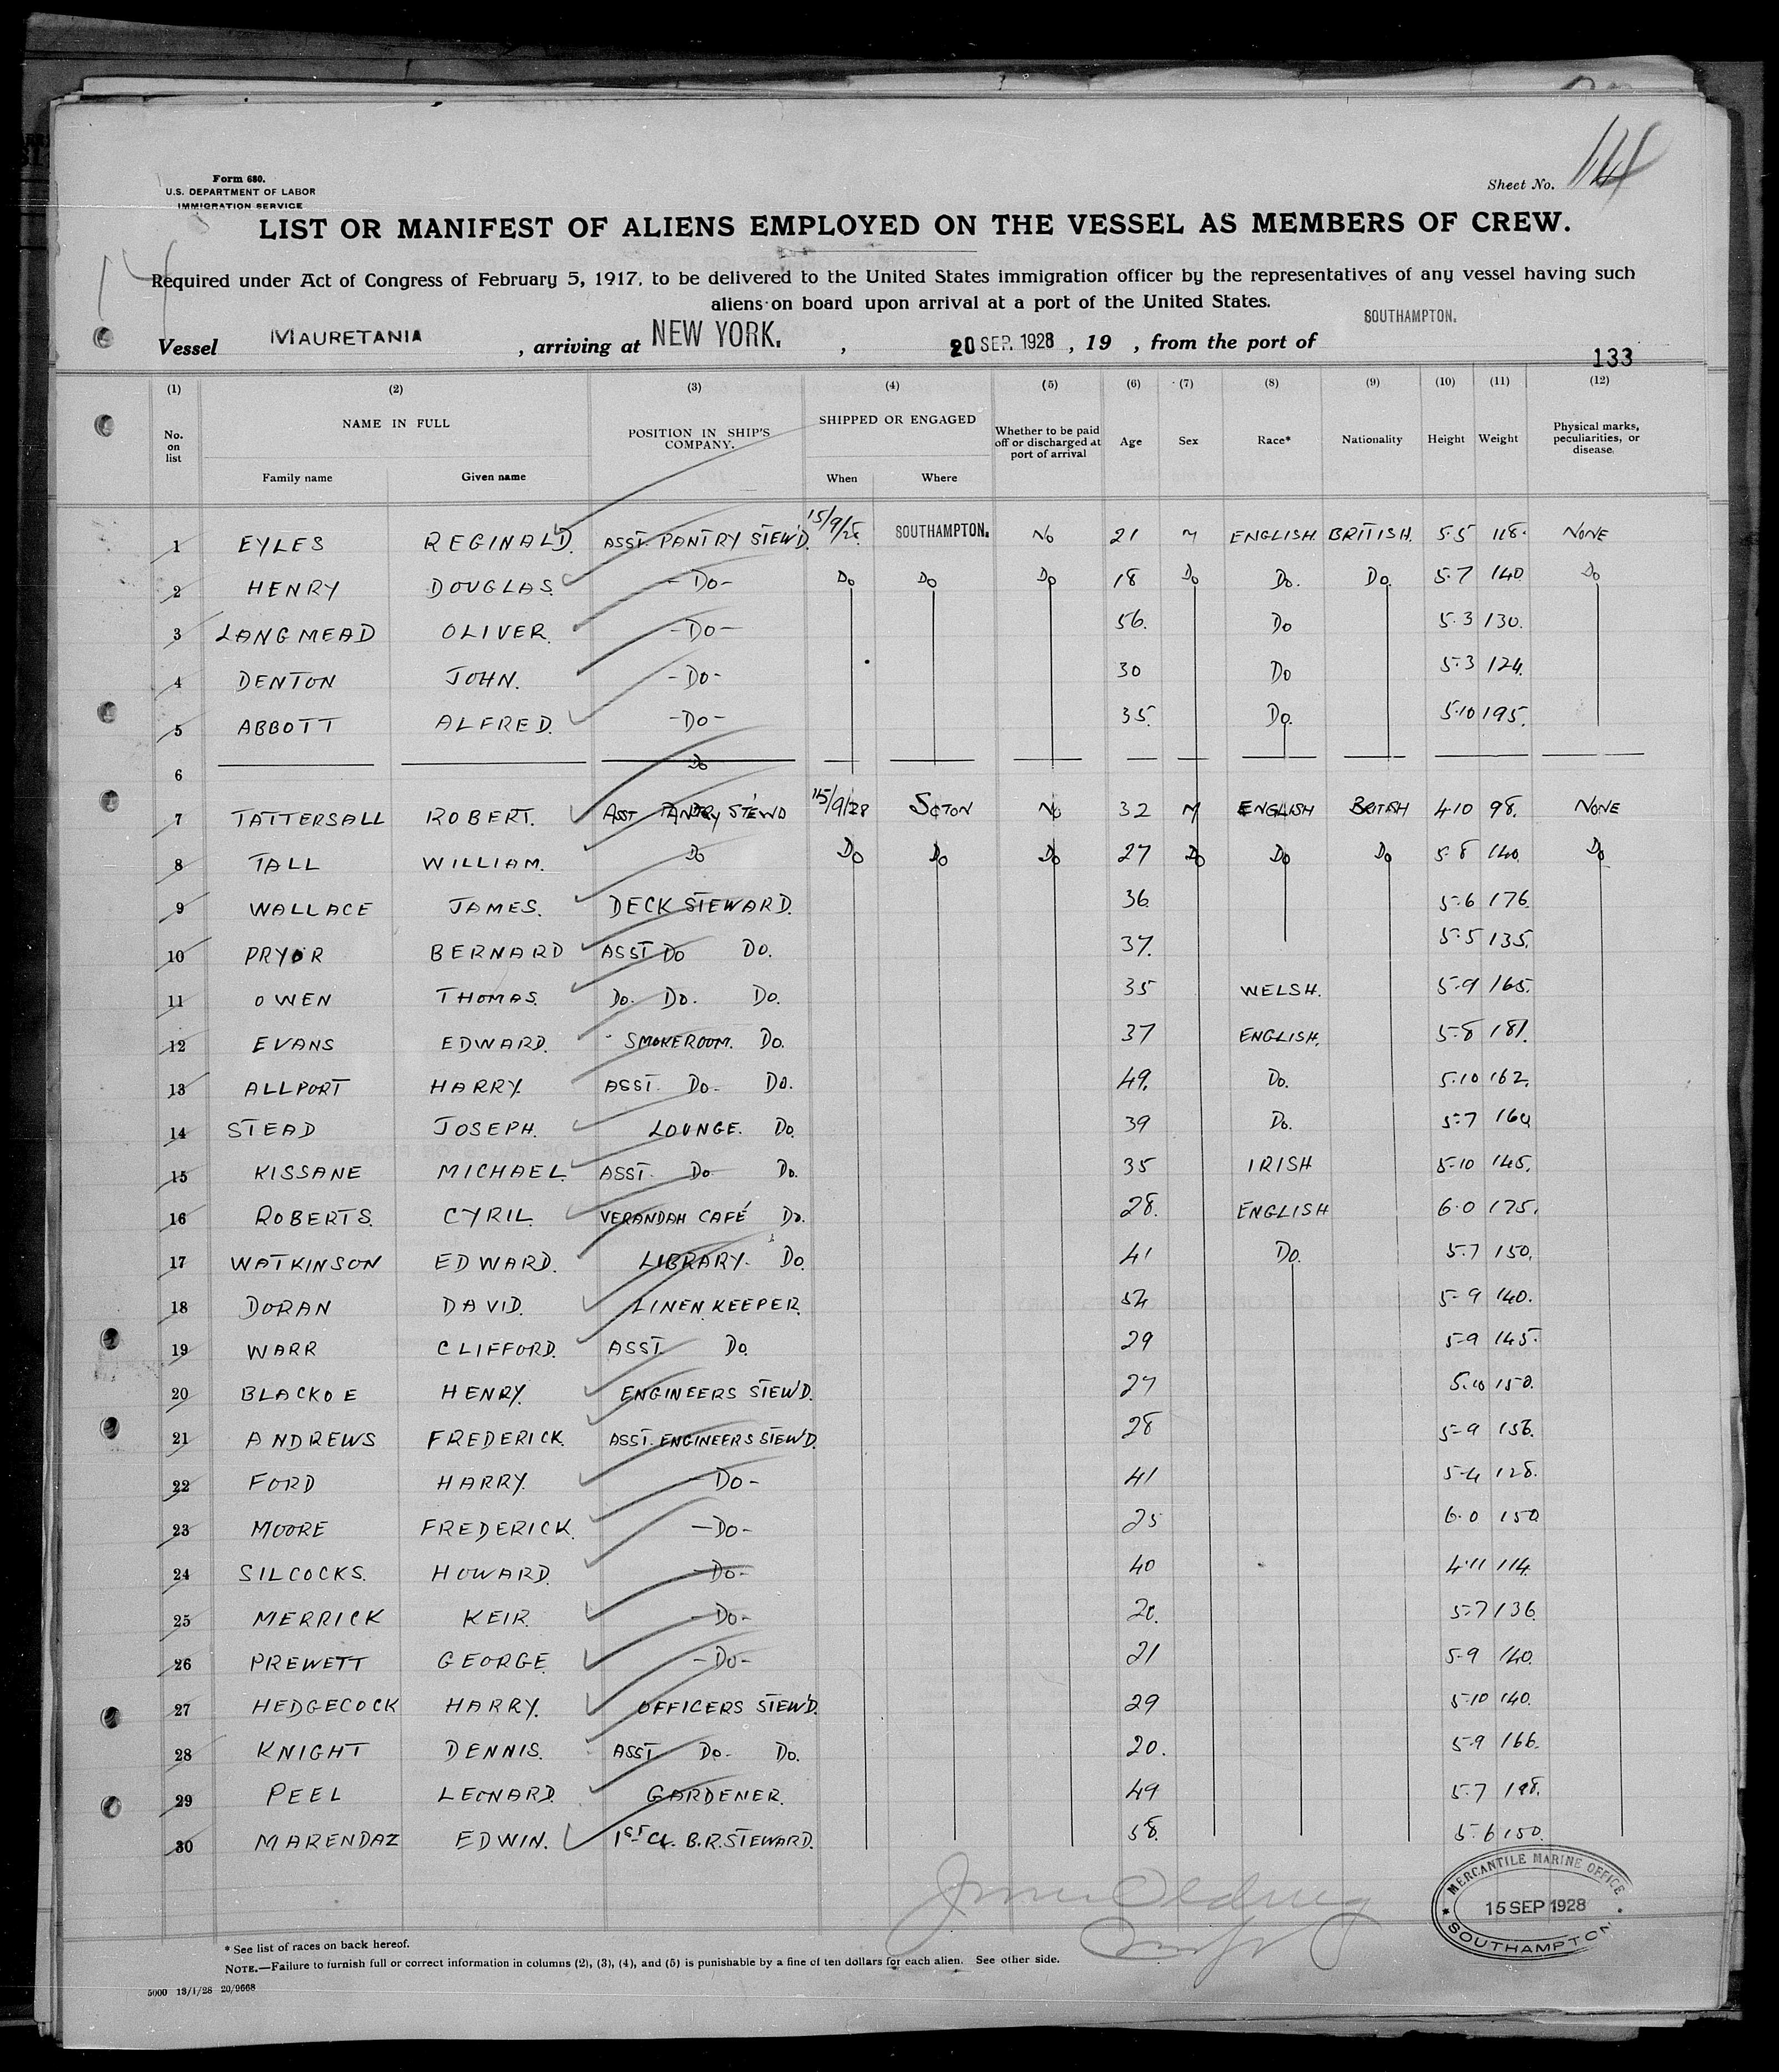 Form 680.
U.S. DEPARTMENT OF LABOR
IMMIGRATION SERVICE
Sheet No.
LIST OR MANIFEST OF ALIENS EMPLOYED ON THE VESSEL AS MEMBERS OF CREW.
Required under Act of Congress of February 5, 1917, to be delivered to the United States immigration officer by the representatives of any vessel having such
aliens on board upon arrival at a port of the United States.
Vessel MAURETANIA, arriving at NEW YORK., 20 SEP. 1928, 19 , from the port of SOUTHAMPTON.
133
(1) (2) (3) (4) (5) (6) (7) (8) (9) (10) (11) (12)
No. on list NAME IN FULL POSITION IN SHIP'S COMPANY. SHIPPED OR ENGAGED Whether to be paid off or discharged at port of arrival Age Sex Race* Nationality Height Weight Physical marks, peculiarities, or disease
Family name Given name When Where
1 EYLES REGINALD. ASST. PANTRY STEW'D. 15/9/28. SOUTHAMPTON. No 21 M ENGLISH BRITISH. 5.5 118. NONE
2 HENRY DOUGLAS. -Do- Do Do Do 18 Do Do. Do. 5.7 140 Do
3 LANGMEAD OLIVER. -Do- 56. Do 5.3 130.
4 DENTON JOHN. -Do- 30 Do 5.3 124.
5 ABBOTT ALFRED. -Do- 35. Do. 5.10 195.
6 Do
7 TATTERSALL ROBERT. ASST PANTRY STEWD 15/9/28 SOTON No 32 M ENGLISH BRITISH 4.10 98. NONE
8 TALL WILLIAM. Do Do Do Do 27 Do Do Do 5.8 140. Do
9 WALLACE JAMES. DECK STEWARD. 36. 5.6 176.
10 PRYOR BERNARD ASST Do Do. 37. 5.5 135.
11 OWEN THOMAS. Do. Do. Do. 35 WELSH. 5.9 165.
12 EVANS EDWARD. SMOKEROOM. Do. 37 ENGLISH. 5.8 181.
13 ALLPORT HARRY. ASST. Do. Do. 49. Do. 5.10 162.
14 STEAD JOSEPH. LOUNGE. Do. 39 Do. 5.7 164
15 KISSANE MICHAEL. ASST. Do Do. 35 IRISH 5.10 145.
16 ROBERTS. CYRIL. VERANDAH CAFÉ Do. 28. ENGLISH 6.0 175.
17 WATKINSON EDWARD. LIBRARY. Do. 41 Do. 5.7 150.
18 DORAN DAVID. LINEN KEEPER. 54 5.9 140.
19 WARR CLIFFORD. ASST. Do. 29 5.9 145.
20 BLACKOE HENRY. ENGINEERS STEW'D. 27 5.10 150.
21 ANDREWS FREDERICK. ASST. ENGINEERS STEW'D. 28 5.9 156.
22 FORD HARRY. Do- 41 5.4 128.
23 MOORE FREDERICK. -Do- 25 6.0 150
24 SILCOCKS. HOWARD. -Do- 40 4.11 114.
25 MERRICK KEIR. -Do- 5.7 136.
26 PREWETT GEORGE. -Do- 21 5.9 140.
27 HEDGECOCK HARRY. OFFICERS STEW'D. 29 5.10 140.
28 KNIGHT DENNIS. ASST Do. Do. 20. 5.9 166.
29 PEEL LEONARD. GARDENER. 49 5.7
30 MARENDAZ EDWIN. 1ST CL. B.R. STEWARD. 58. 5.6 150.
MERCANTILE MARINE OFFICE
15 SEP 1928
SOUTHAMPTON
* See list of races on back hereof.
NOTE.—Failure to furnish full or correct information in columns (2), (3), (4), and (5) is punishable by a fine of ten dollars for each alien. See other side.
5000 13/1/28 20/9668